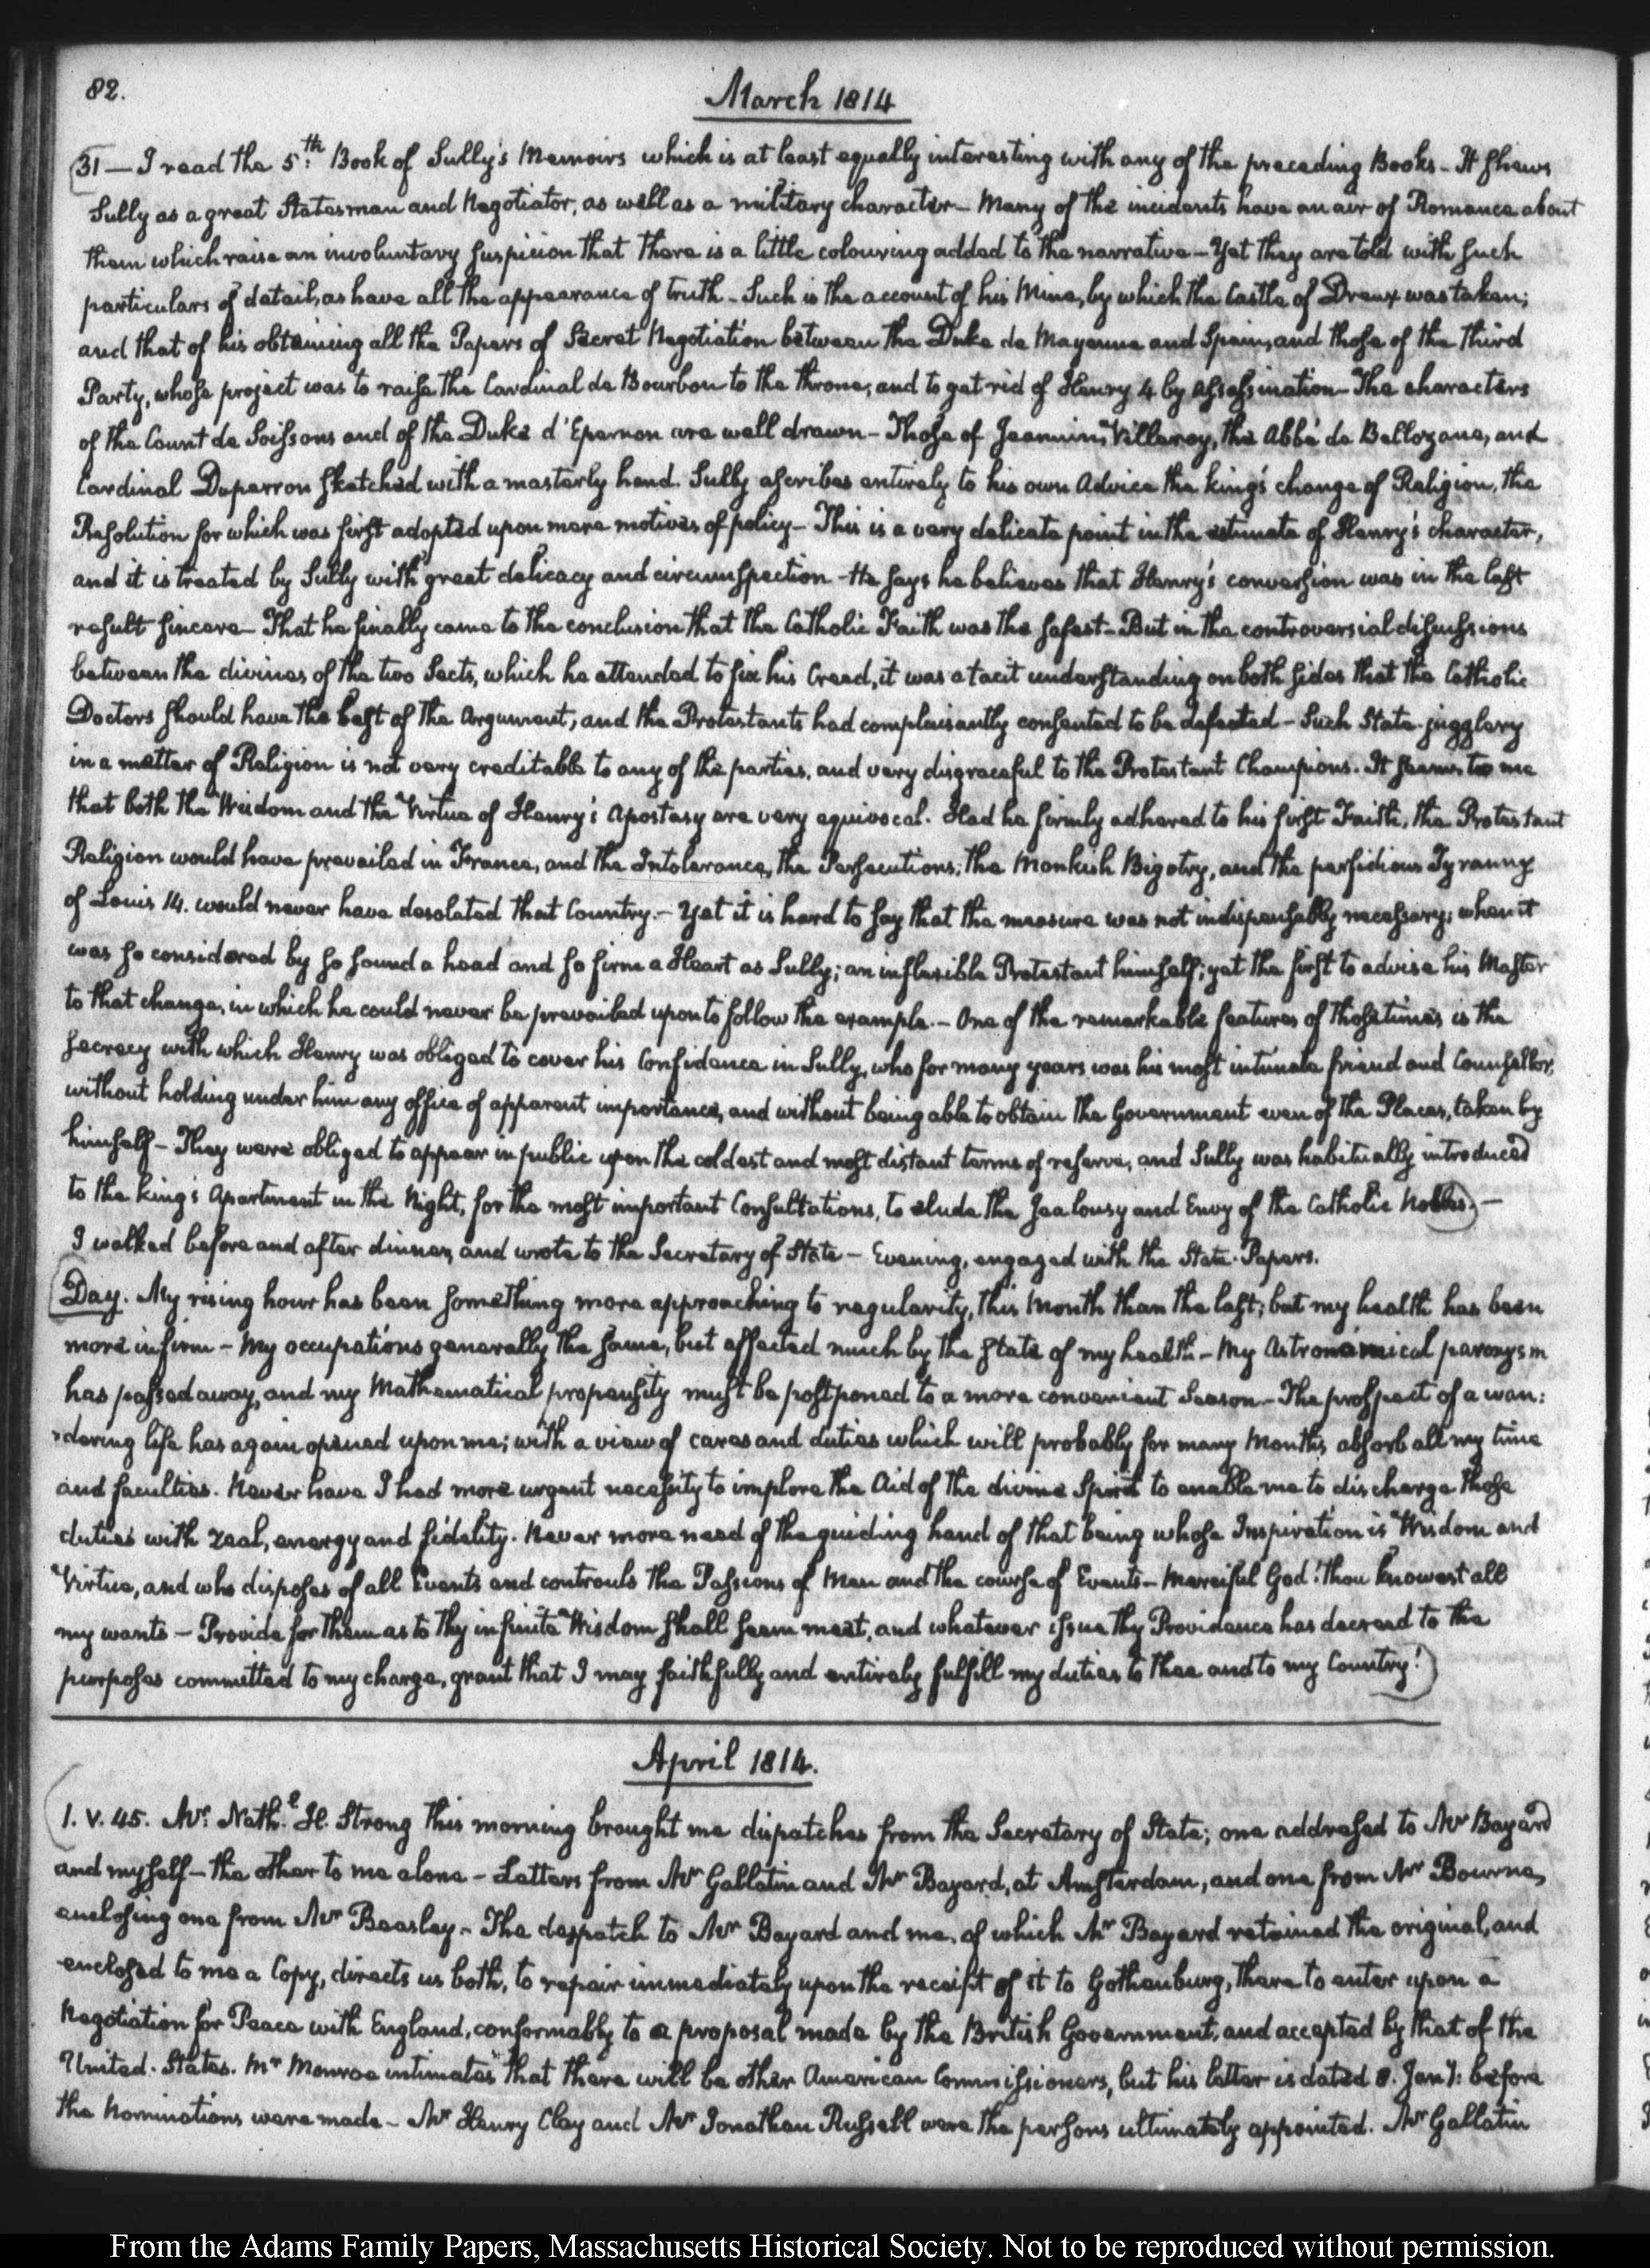 82.
March 1814
31 — I read the 5.th Book of Sully's Memoirs which is at least equally interesting with any of the preceding Books - It shews
Sully as a great Statesman and Negotiator, as well as a military character - Many of the incidents have an air of Romance about
them which raise an involuntary suspicion that there is a little colouring added to the narrative - Yet they are told with such
particulars of detail, as have all the appearance of truth - Such is the account of his Mine, by which the Castle of Dreux was taken;
and that of his obtaining all the Papers of Secret Negotiation between the Duke de Mayenne and Spain, and those of the third
Party, whose project was to raise the Cardinal de Bourbon to the throne; and to get rid of Henry 4 by assassination - The characters
of the Count de Soissons and of the Duke d'Epernon are well drawn - Those of Jeannin, Villeroy, the Abbé de Bellozane, and
Cardinal Duperron sketched with a masterly hand. Sully ascribes entirely to his own Advice the king's change of Religion, the
Resolution for which was first adopted upon mere motives of policy - This is a very delicate point in the estimate of Henry's character,
and it is treated by Sully with great delicacy and circumspection - He says he believes that Henry's conversion was in the last
result sincere - That he finally came to the conclusion that the Catholic Faith was the safest - But in the controversial discussions
between the divines of the two Sects, which he attended to fix his Creed, it was a tacit understanding on both sides that the Catholic
Doctors should have the best of the Argument; and the Protestants had complaisantly consented to be defeated - Such State-jugglery
in a matter of Religion is not very creditable to any of the parties, and very disgraceful to the Protestant Champions. It seems to me
that both the Wisdom and the Virtue of Henry's Apostasy are very equivocal. Had he firmly adhered to his first Faith, the Protestant
Religion would have prevailed in France, and the Intolerance, the Persecutions, the Monkish Bigotry, and the perfidious Tyranny
of Louis 14. would never have desolated that Country. - Yet it is hard to say that the measure was not indispensably necessary; when it
was so considered by so sound a head and so firm a Heart as Sully; an inflexible Protestant himself; yet the first to advise his Master
to that change, in which he could never be prevailed upon to follow the example. - One of the remarkable features of those times is the
secrecy with which Henry was obliged to cover his Confidence in Sully, who for many years was his most intimate friend and Counsellor,
without holding under him any office of apparent importance, and without being able to obtain the Government even of the Places, taken by
himself - They were obliged to appear in public upon the coldest and most distant terms of reserve, and Sully was habitually introduced
to the king's Apartment in the Night, for the most important Consultations, to elude the Jealousy and Envy of the Catholic Nobles. -
I walked before and after dinner, and wrote to the Secretary of State - Evening, engaged with the State-Papers.
Day. My rising hour has been something more approaching to regularity, this Month than the last; but my health has been
more infirm - My occupations generally the same, but affected much by the state of my health - My Astronomical paroxysm
has passed away, and my Mathematical propensity must be postponed to a more convenient Season - The prospect of a wan:
:dering life has again opened upon me; with a view of cares and duties which will probably for many Months, absorb all my time
and faculties. Never have I had more urgent necessity to implore the Aid of the divine Spirit to enable me to discharge those
duties with zeal, energy and fidelity. Never more need of the guiding hand of that being whose Inspiration is Wisdom and
Virtue, and who disposes of all Events and controuls the Passions of Men and the course of Events - Merciful God! thou knowest all
my wants - Provide for them as to thy infinite Wisdom shall seem meet, and whatever issue thy Providence has decreed to the
purposes committed to my charge, grant that I may faithfully and entirely fulfill my duties to thee and to my Country!
April 1814.
1. V. 45. Mr. Nath.l H. Strong this morning brought me dispatches from the Secretary of State; one addressed to Mr Bayard
and myself - the other to me alone - Letters from Mr Gallatin and Mr Bayard, at Amsterdam, and one from Mr Bourne,
enclosing one from Mr Beasley - The despatch to Mr Bayard and me, of which Mr Bayard retained the original, and
enclosed to me a Copy, directs us both, to repair immediately upon the receipt of it to Gothenburg, there to enter upon a
Negotiation for Peace with England, conformably to a proposal made by the British Government, and accepted by that of the
United-States. Mr Monroe intimates that there will be other American Commissioners, but his letter is dated 8. Jany: before
the Nominations were made - Mr Henry Clay and Mr Jonathan Russell were the persons ultimately appointed. Mr Gallatin
From the Adams Family Papers, Massachusetts Historical Society. Not to be reproduced without permission.